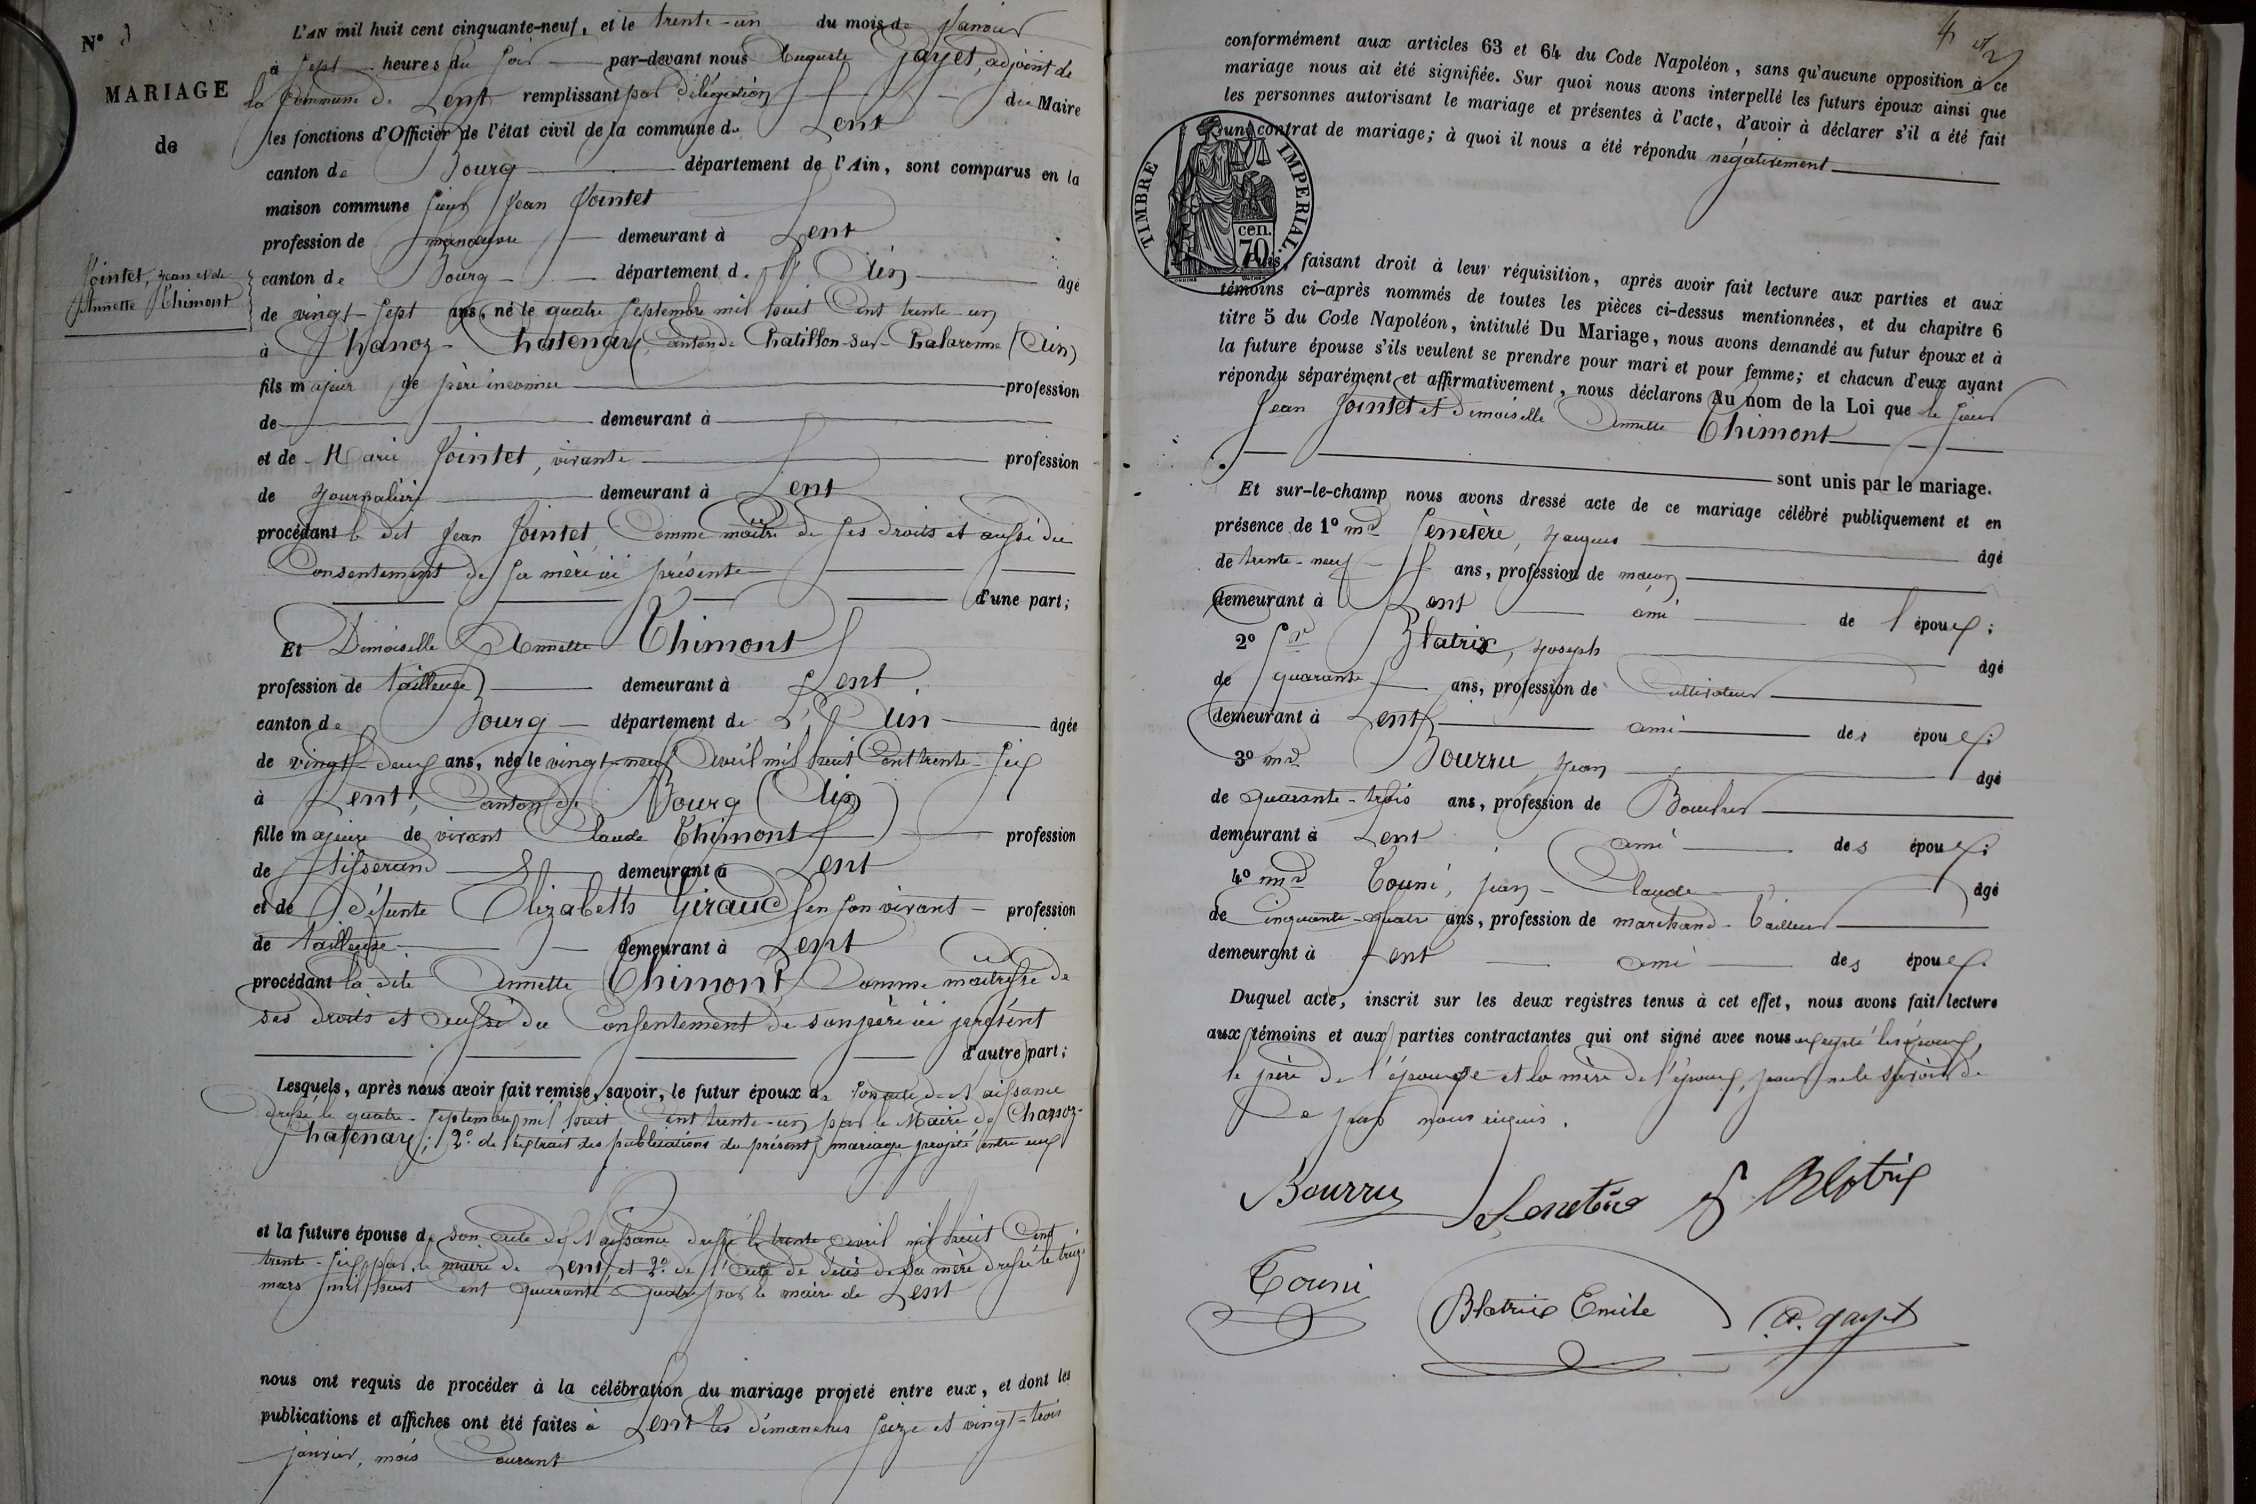 N° 
MARIAGE
de
Jointet, Jean et de
Annette Thimont
L'AN mil huit cent cinquante-neuf, et le trente-un du mois de Janvier
à sept heures du soir par-devant nous Auguste Gayet, adjoint de
la Commune de Lent remplissant par délégation du Maire
les fonctions d'Officier de l'état civil de la commune de Lent
canton de Bourg département de l'Ain, sont comparus en la
maison commune sieur Jean Jointet
profession de manœuvre demeurant à Lent
canton de Bourg département de l'Ain âgé
de vingt-sept ans, né le quatre septembre mil huit cent trente-un
à Chanoz-Chatenay, canton de Chatillon-sur-Chalaronne (Ain)
fils majeur de père inconnu profession
de demeurant à
et de Marie Jointet, vivante profession
de journalière demeurant à Lent
procédant le dit Jean Jointet, Comme maître de ses droits et aussi du
Consentement de sa mère ici présente
d'une part;
Et Demoiselle Annette Thimont
profession de tailleuse demeurant à Lent
canton de Bourg département de L'Ain âgée
de vingt-deux ans, née le vingt-neuf Avril mil huit Cent trente-six
à Lent, Canton de Bourg (Ain)
fille majeure de vivant Claude Thimont profession
de tisserand demeurant à Lent
et de défunte Elizabeth Giraud en son vivant profession
de tailleuse demeurant à Lent
procédant la dite Annette Thimont, Comme maîtresse de
ses droits et aussi du Consentement de son père ici présent
d'autre part;
Lesquels, après nous avoir fait remise, savoir, le futur époux de son acte de Naissance
dressé le quatre septembre mil huit Cent trente-un par le Maire de Chanoz-
Chatenay; 2° de l'extrait des publications du présent mariage projeté entre eux
et la future épouse de son acte de Naissance dressé le trente avril mil huit Cent
trente-six par le maire de Lent, et 2° de l'acte de décès de sa mère dressé le treize
mars mil huit cent quarante quatre par le maire de Lent
nous ont requis de procéder à la célébration du mariage projeté entre eux, et dont les
publications et affiches ont été faites à Lent les dimanches seize et vingt-trois
janvier, mois Courant
4
conformément aux articles 63 et 64 du Code Napoléon, sans qu'aucune opposition à ce
mariage nous ait été signifiée. Sur quoi nous avons interpellé les futurs époux ainsi que
les personnes autorisant le mariage et présentes à l'acte, d'avoir à déclarer s'il a été fait
un contrat de mariage; à quoi il nous a été répondu négativement
TIMBRE IMPERIAL.
70 cen.
Puis, faisant droit à leur réquisition, après avoir fait lecture aux parties et aux
témoins ci-après nommés de toutes les pièces ci-dessus mentionnées, et du chapitre 6
titre 5 du Code Napoléon, intitulé Du Mariage, nous avons demandé au futur époux et à
la future épouse s'ils veulent se prendre pour mari et pour femme; et chacun d'eux ayant
répondu séparément et affirmativement, nous déclarons Au nom de la Loi que le sieur
Jean Jointet et demoiselle Annette Thimont
sont unis par le mariage.
Et sur-le-champ nous avons dressé acte de ce mariage célébré publiquement et en
présence de 1° md Senetère, Jacques âgé
de trente-neuf ans, profession de maçon
demeurant à Lent ami de l'époux;
2° Sr Blatrix, Joseph âgé
de quarante ans, profession de Cultivateur
demeurant à Lent ami des époux;
3° md Bourru, Jean âgé
de quarante-trois ans, profession de Boucher
demeurant à Lent ami des époux;
4° md Touni, Jean-Claude âgé
de Cinquante-quatre ans, profession de marchand-Tailleur
demeurant à Lent ami des époux.
Duquel acte, inscrit sur les deux registres tenus à cet effet, nous avons fait lecture
aux témoins et aux parties contractantes qui ont signé avec nous excepté les époux,
le père de l'épouse et la mère de l'époux, pour ne le savoir de
Ce par nous requis.
Bourru Senetère J Blatrix
Touni Blatrix Emile A. gayet